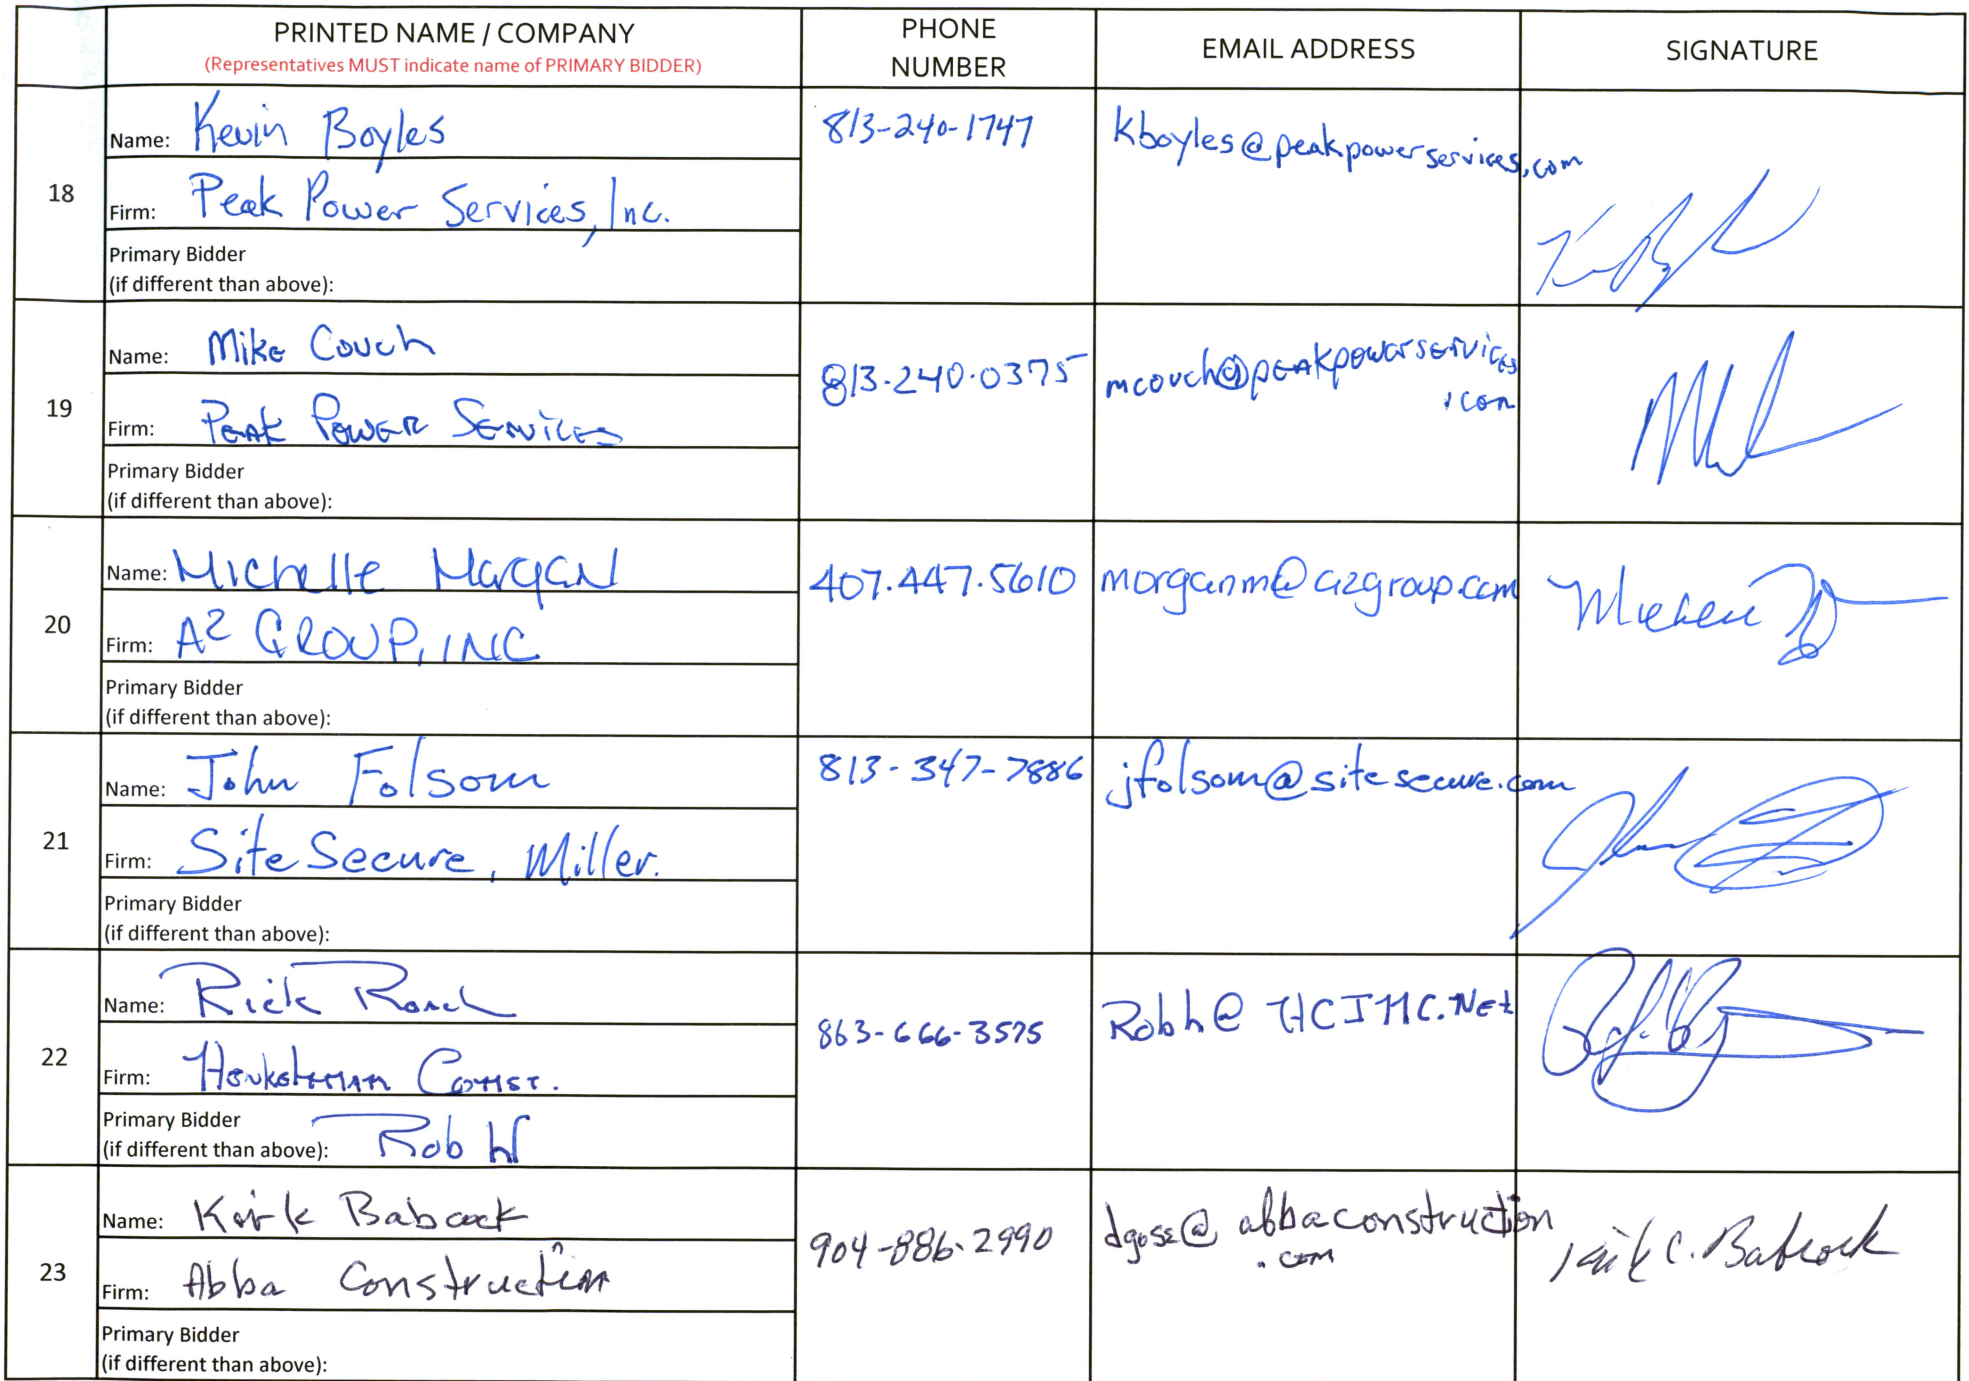 PRINTED NAME / COMPANY
(Representatives MUST indicate name of PRIMARY BIDDER)
PHONE
NUMBER
EMAIL ADDRESS
SIGNATURE
18
Name: Kevin Boyles
Firm: Peak Power Services, Inc.
Primary Bidder
(if different than above):
813-240-1747
kboyles@peakpowerservices.com
19
Name: Mike Couch
Firm: Peak Power Services
Primary Bidder
(if different than above):
813-240-0375
mcouch@peakpowerservices
.com
20
Name: Michelle Morgan
Firm: A2 GROUP, INC
Primary Bidder
(if different than above):
407.447.5610
morganm@a2group.com
21
Name: John Folsom
Firm: Site Secure, Miller.
Primary Bidder
(if different than above):
813-347-7886
jfolsom@sitesecure.com
22
Name: Rick
Firm: Const.
Primary Bidder
(if different than above): Rob H
863-666-3575
Robh@HCIHC.Net
23
Name: Kirk Babcock
Firm: Abba Construction
Primary Bidder
(if different than above):
904-886-2990
dgose@abbaconstruction
.com
Kirk C. Babcock